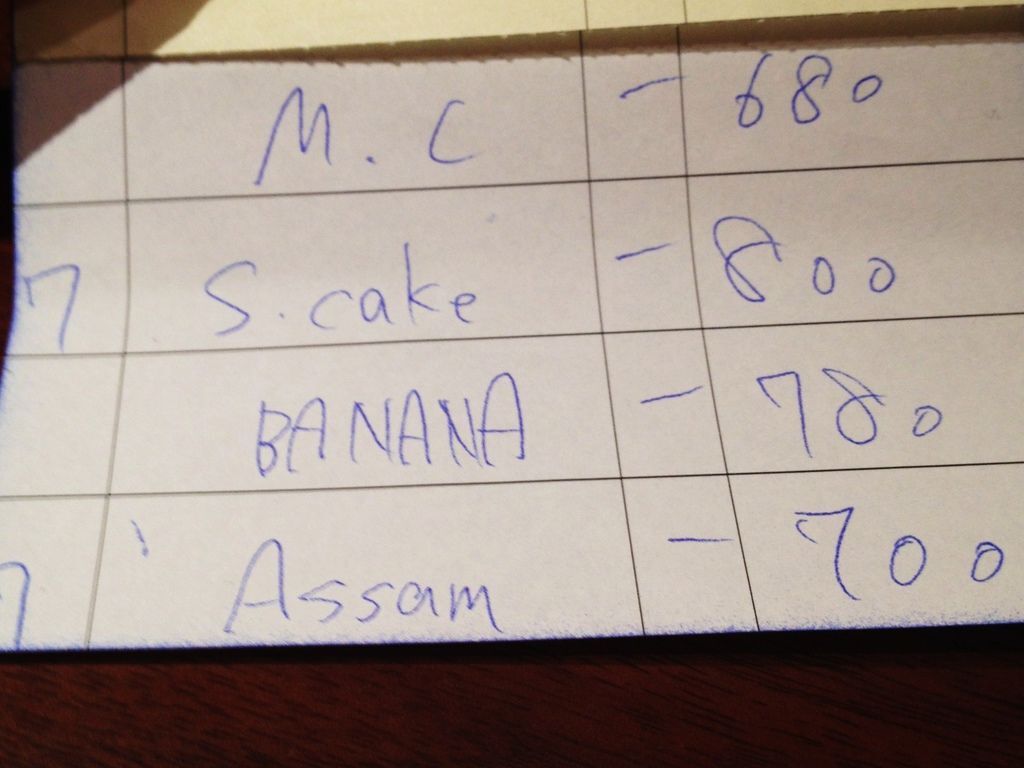 M. C - 680
7 S. cake - 800
BANANA - 780
7 Assam - 700